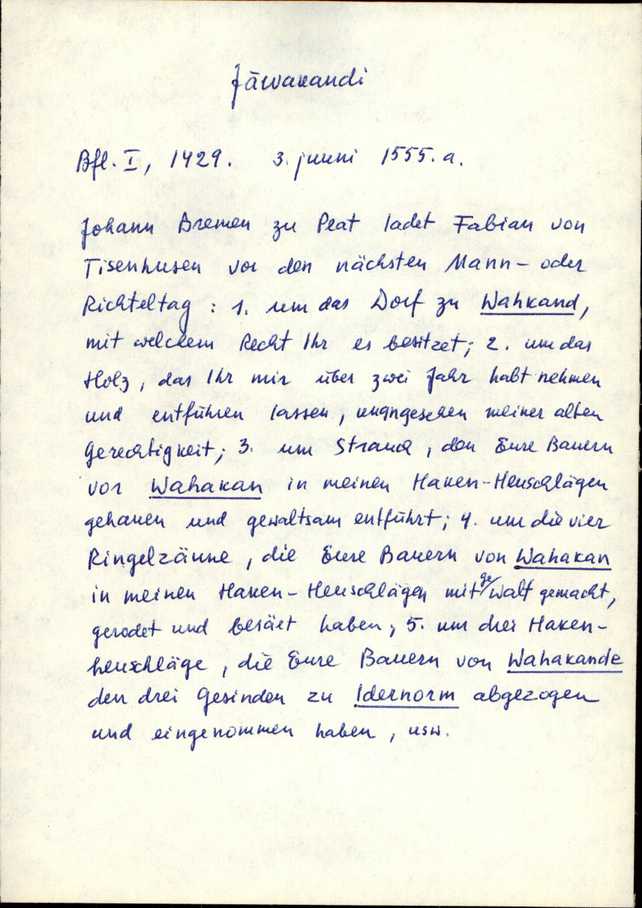 Jäwakandi
Bfl. I, 1429. 3. juuni 1555. a.
Johann Bremen zu Peat ladet Fabian von
Tisenhusen vor den nächsten Mann- oder
Richteltag : 1. um das Dorf zu Wahkand,
mit welchem Recht Ihr es besitzet; 2. um das
Holz, das Ihr mir über zwei Jahr habt nehmen
und entführen lassen, unangesehen meiner alten
Gerechtigkeit; 3. um Strauch, den Eure Bauern
vor Wahakan in meinen Haken-Heuschlägen
gehauen und gewaltsam entführt; 4. um die vier
Ringelzäune, die Eure Bauern von Wahakan
in meinen Haken-Heuschlägen mit gewalt gemacht,
gerodet und besäet haben; 5. um drei Haken-
heuschläge, die Eure Bauern von Wahakande
den drei Gesinden zu Idernorm abgezogen
und eingenommen haben, usw.